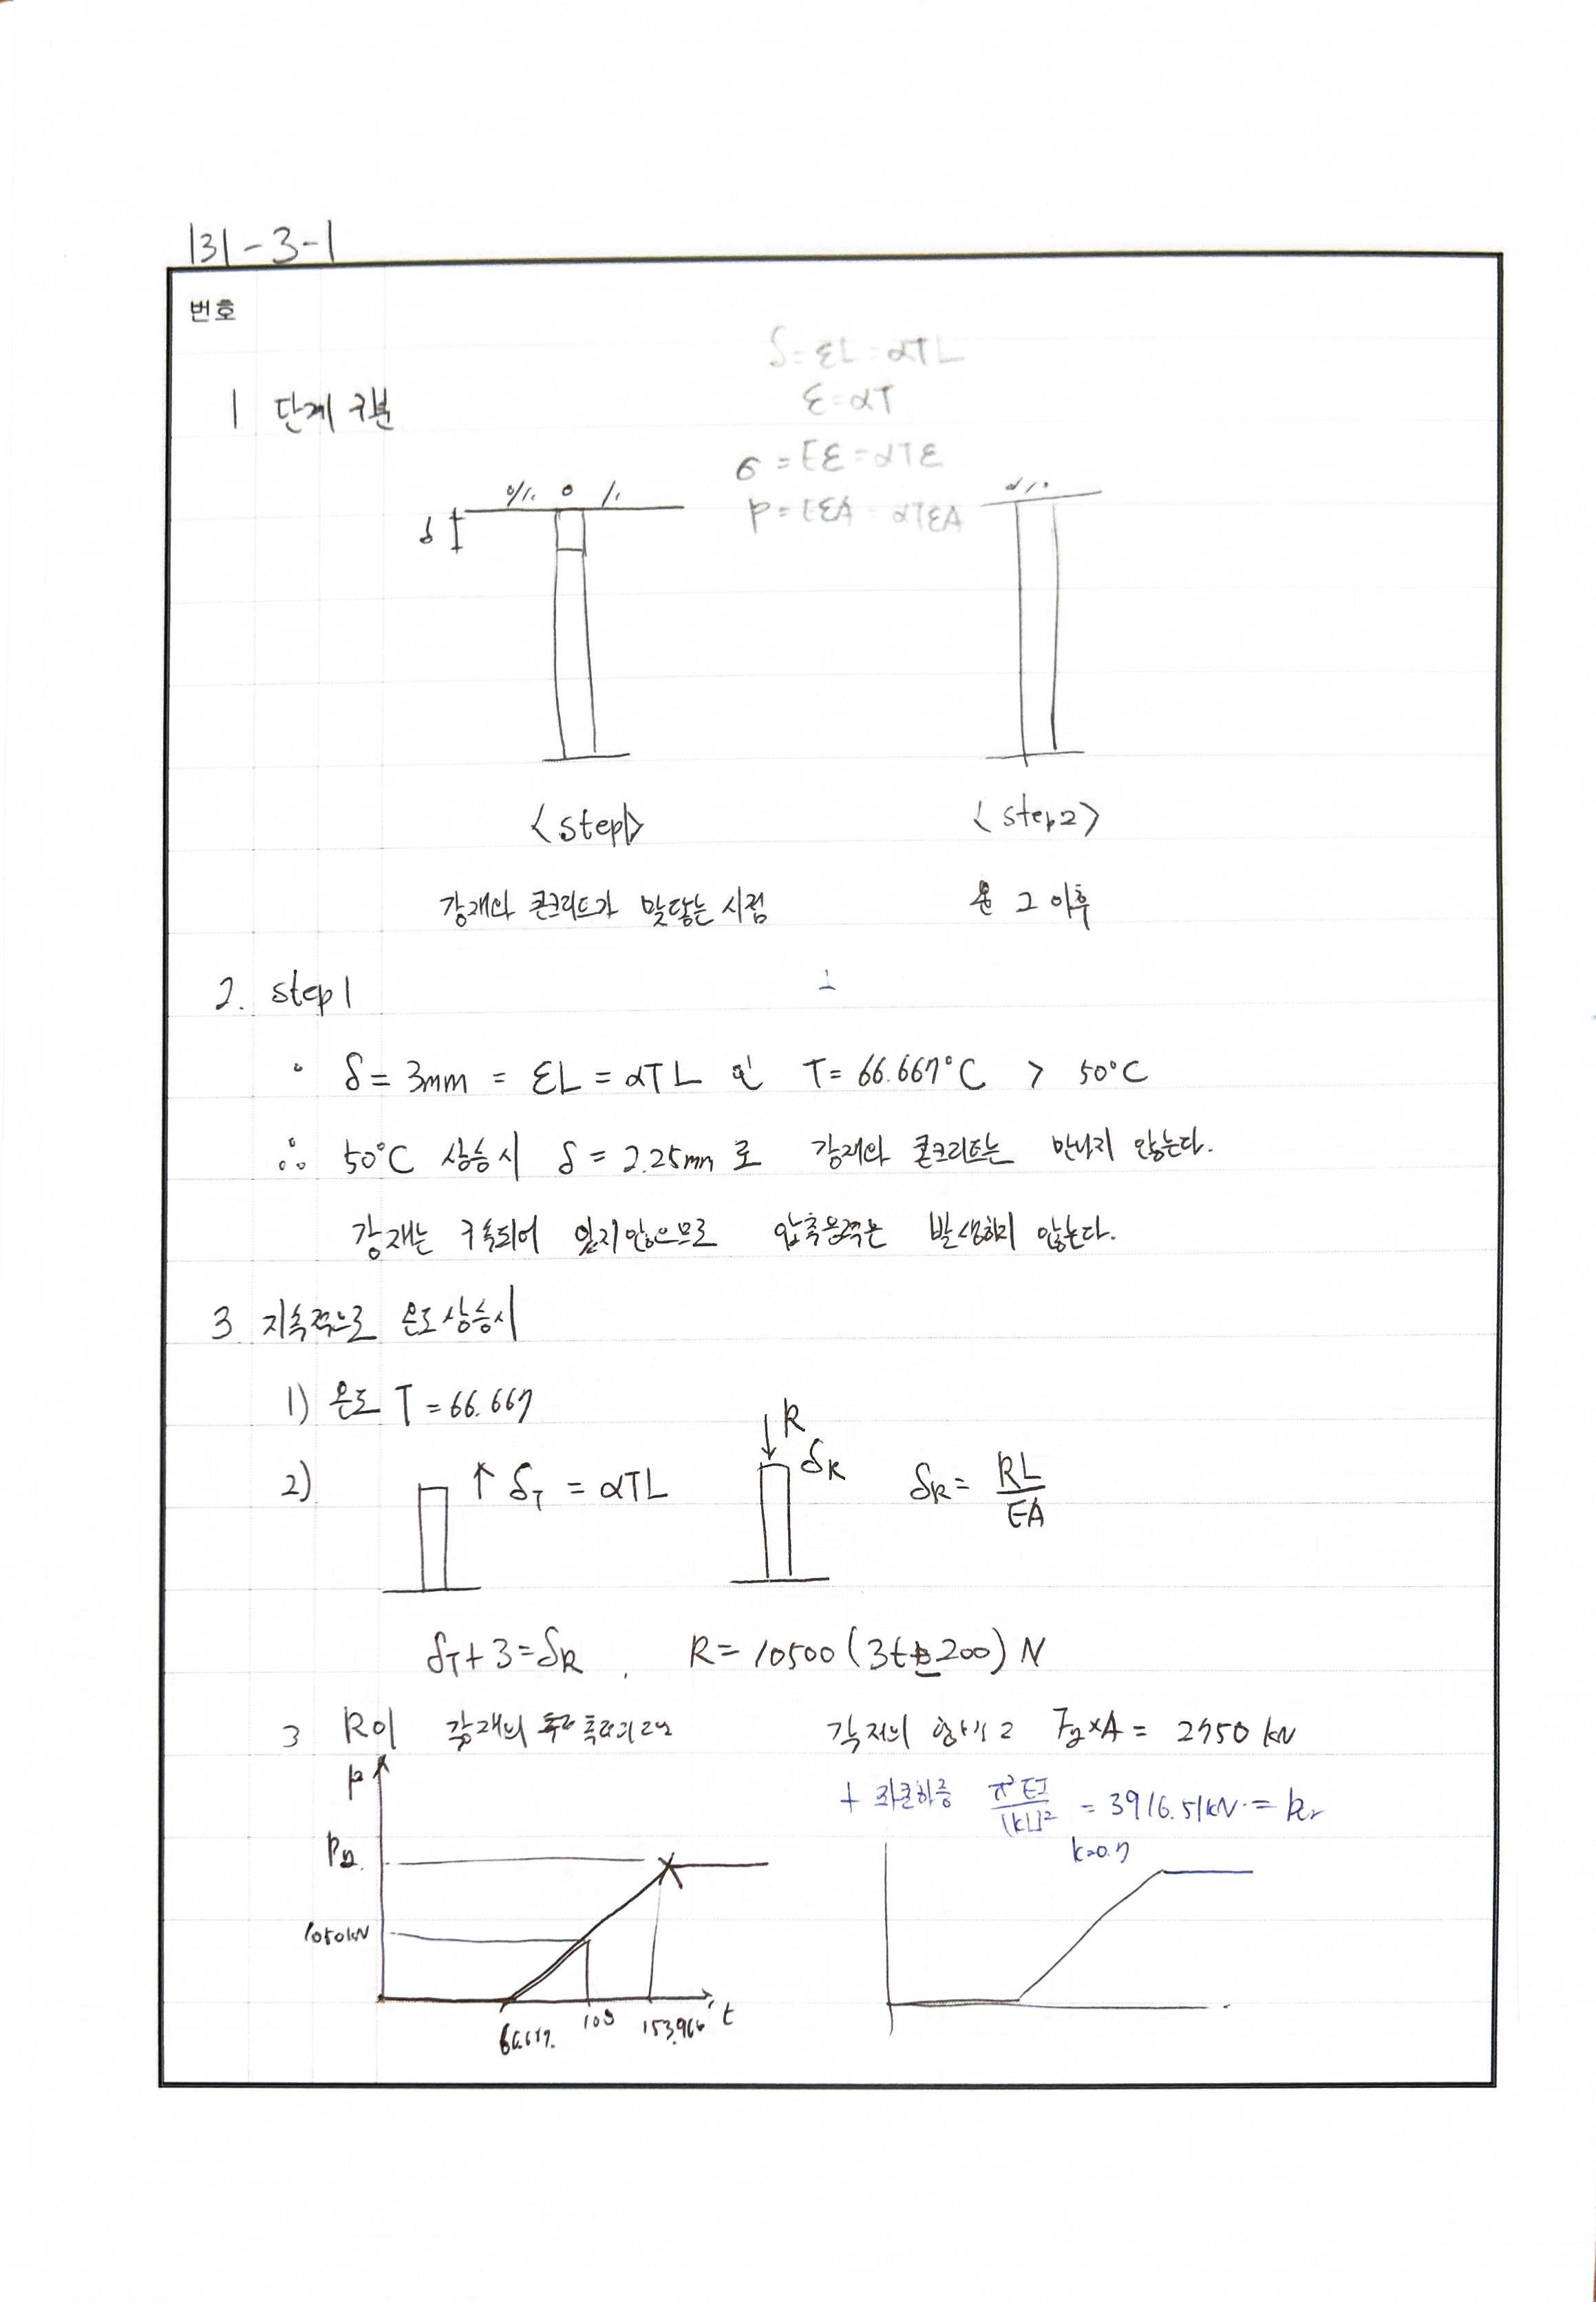 131-3-1
번호
δ=εL=αTL
1 단계 구분
ε=αT
σ=Eε=αTE
P=EεA=αTEA
δ
<step1>
<step2>
강재와 콘크리트가 맞닿는 시점
그 이후
2. step1
• δ = 3mm = εL = αTL 인 T= 66.667°C > 50°C
∴ 50°C 상승시 δ = 2.25mm 로 강재와 콘크리트는 만나지 않는다.
강재는 구속되어 있지않으므로 압축응력은 발생하지 않는다.
3 지속적으로 온도상승시
1) 온도 T = 66.667
2) ↑ δT = αTL
↓R δR
δR = RL/EA
δT+3=δR , R= 10500(3t-200) N
3 R이 강재의
강재의 항복 Fy×A = 2750 kN
+ 좌굴하중 π²EI/(kL)² = 3916.51kN = Pcr
k=0.7
P
Py
1050kN
66.667. 100 153.966 t